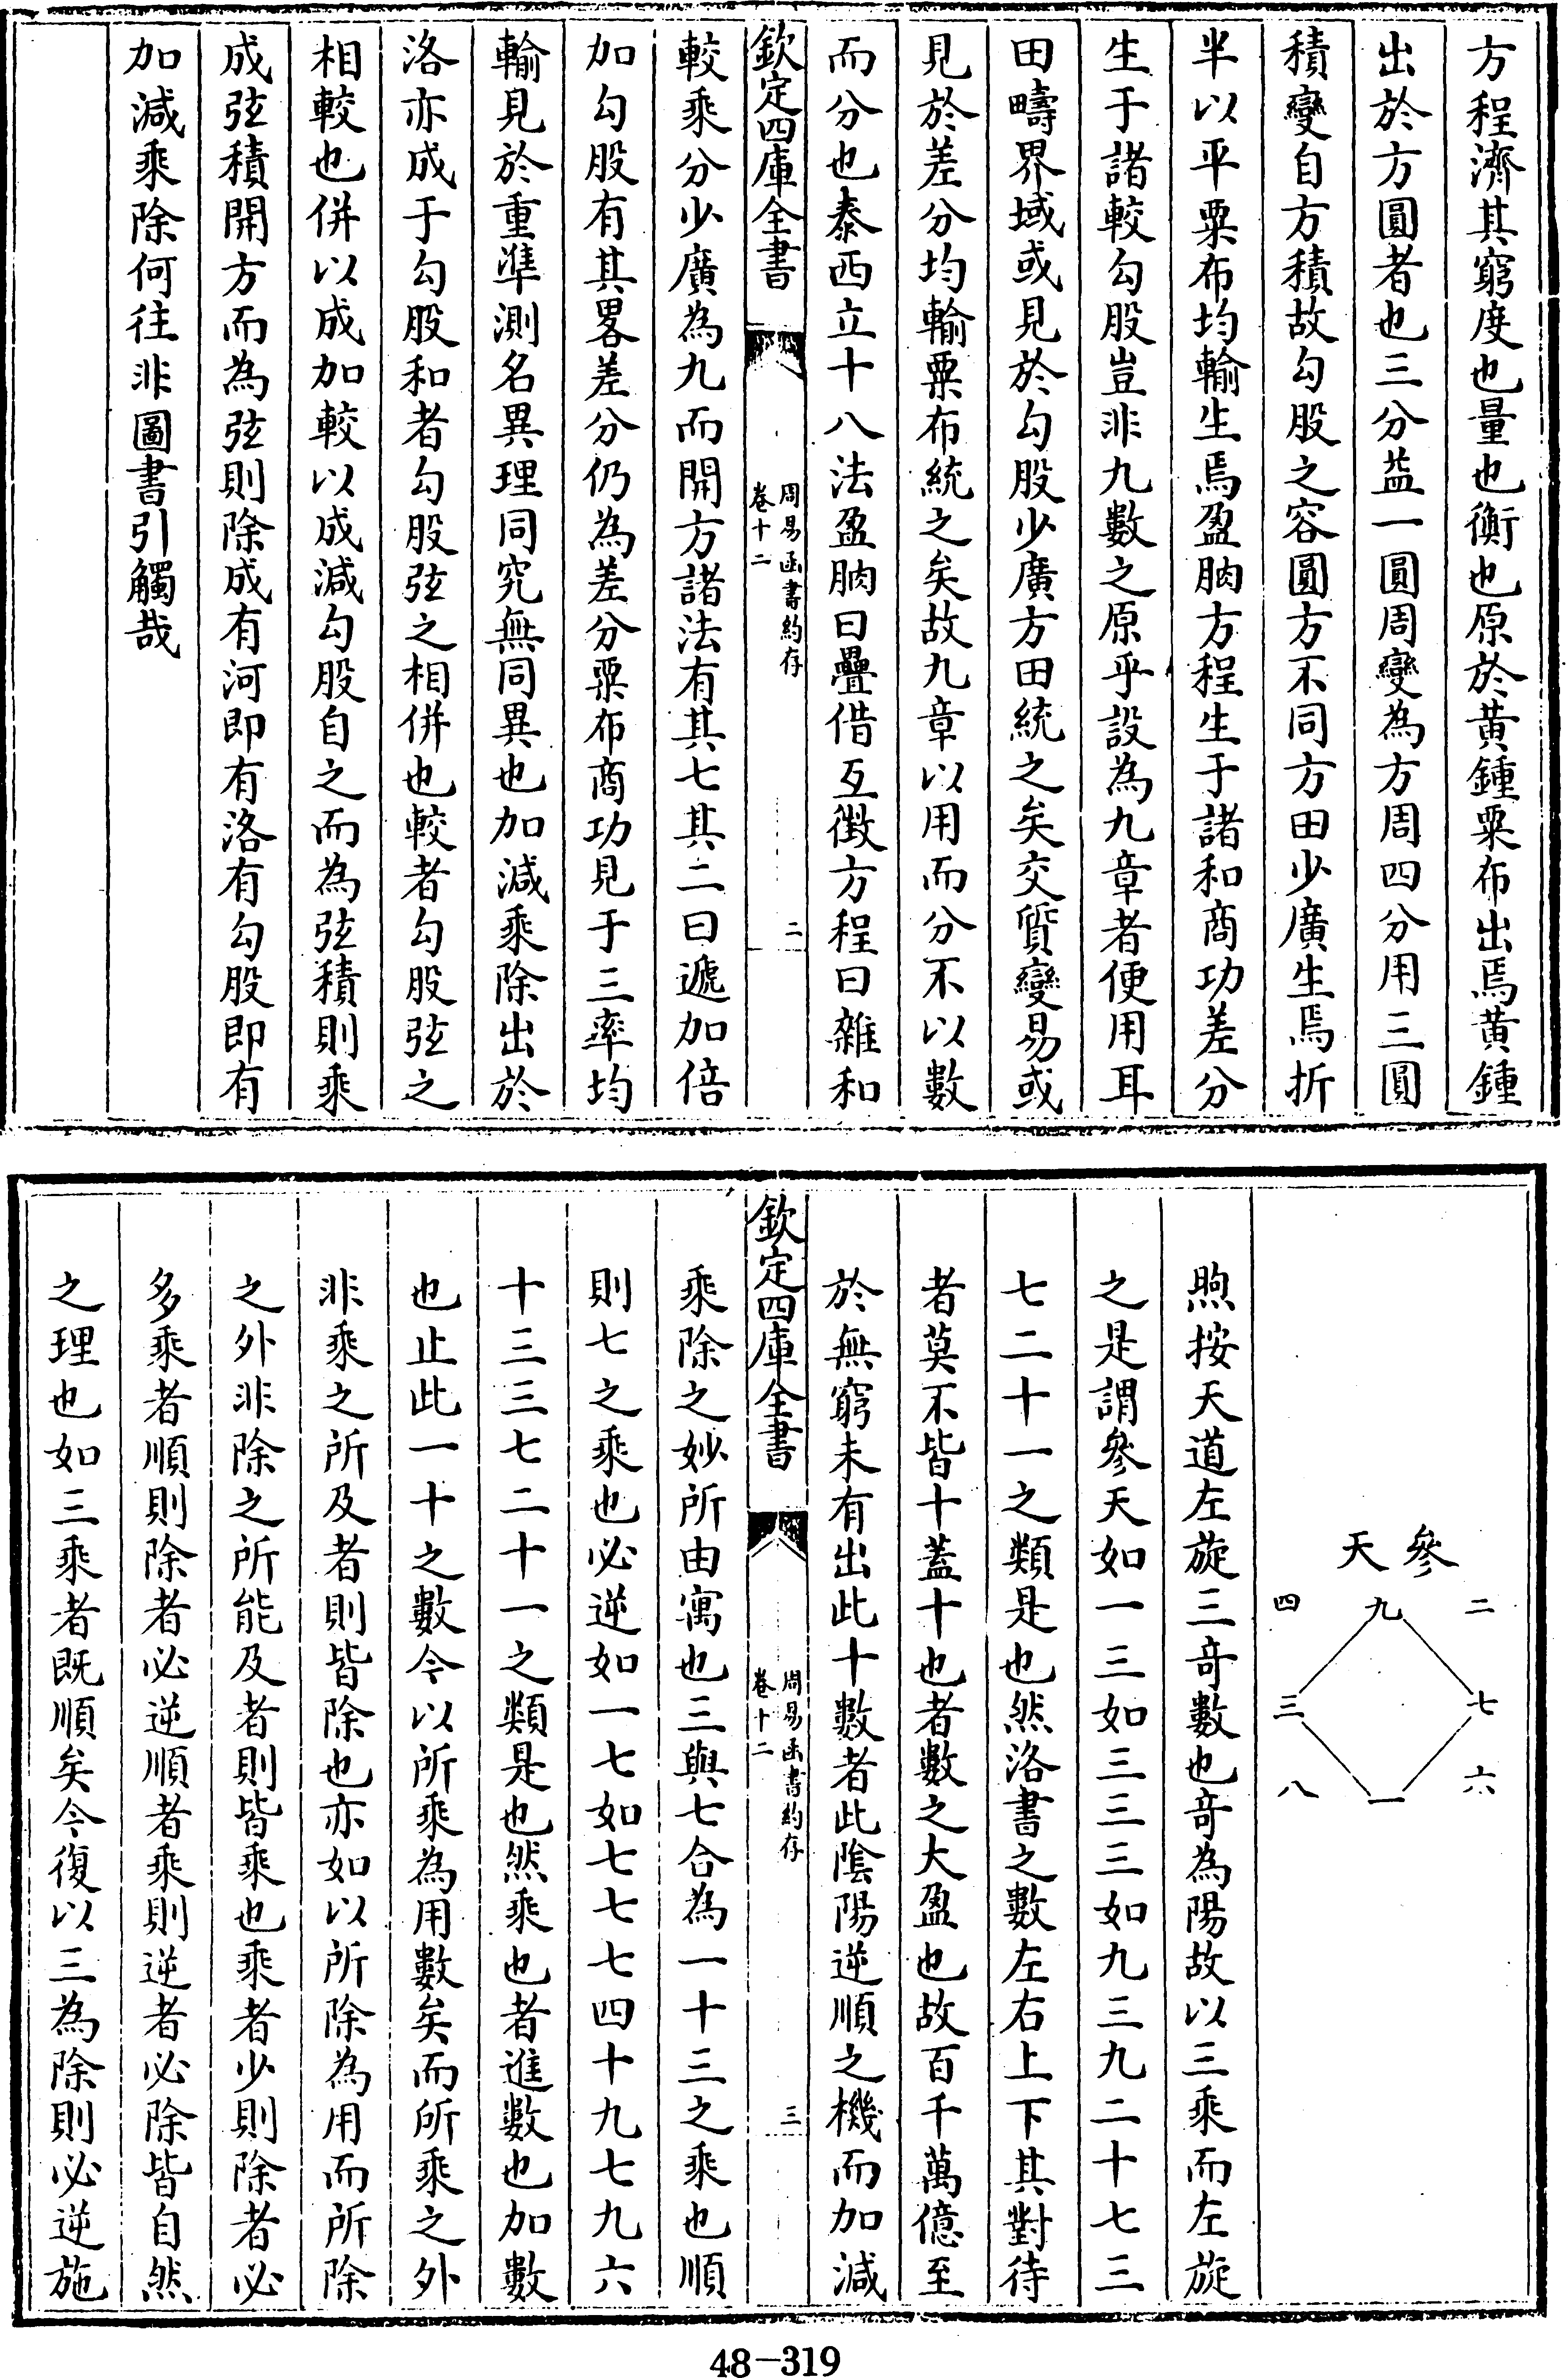 方程濟其窮度也量也衡也原於黄鍾粟布出焉黄鍾
出於方圓者也三分益一圓周變為方周四分用三圓
積變自方積故勾股之容圓方不同方田少廣生焉折
半以平粟布均輸生焉盈朒方程生于諸和商功差分
生于諸較勾股豈非九數之原乎設為九章者便用耳
田疇界域或見於勾股少廣方田統之矣交質變易或
見於差分均輸粟布統之矣故九章以用而分不以數
而分也泰西立十八法盈朒曰疊借互徴方程曰雜和
欽定四庫全書
周易函書約存
卷十二
二
較乘分少廣為九而開方諸法有其七其二曰遞加倍
加勾股有其畧差分仍為差分粟布商功見于三率均
輸見於重準測名異理同究無同異也加減乘除出於
洛亦成于勾股和者勾股弦之相併也較者勾股弦之
相較也併以成加較以成減勾股自之而為弦積則乘
成弦積開方而為弦則除成有河即有洛有勾股即有
加減乘除何往非圖書引觸哉
參天
二 九 四
七 三
六 一 八
煦按天道左旋三竒數也竒為陽故以三乘而左旋
之是謂參天如一三如三三三如九三九二十七三
七二十一之類是也然洛書之數左右上下其對待
者莫不皆十蓋十也者數之大盈也故百千萬億至
於無窮未有出此十數者此隂陽逆順之機而加減
欽定四庫全書
周易函書約存
卷十二
三
乘除之妙所由寓也三與七合為一十三之乘也順
則七之乘也必逆如一七如七七七四十九七九六
十三三七二十一之類是也然乘也者進數也加數
也止此一十之數今以所乘為用數矣而所乘之外
非乘之所及者則皆除也亦如以所除為用而所除
之外非除之所能及者則皆乘也乘者少則除者必
多乘者順則除者必逆順者乘則逆者必除皆自然
之理也如三乘者既順矣今復以三為除則必逆施
48-319